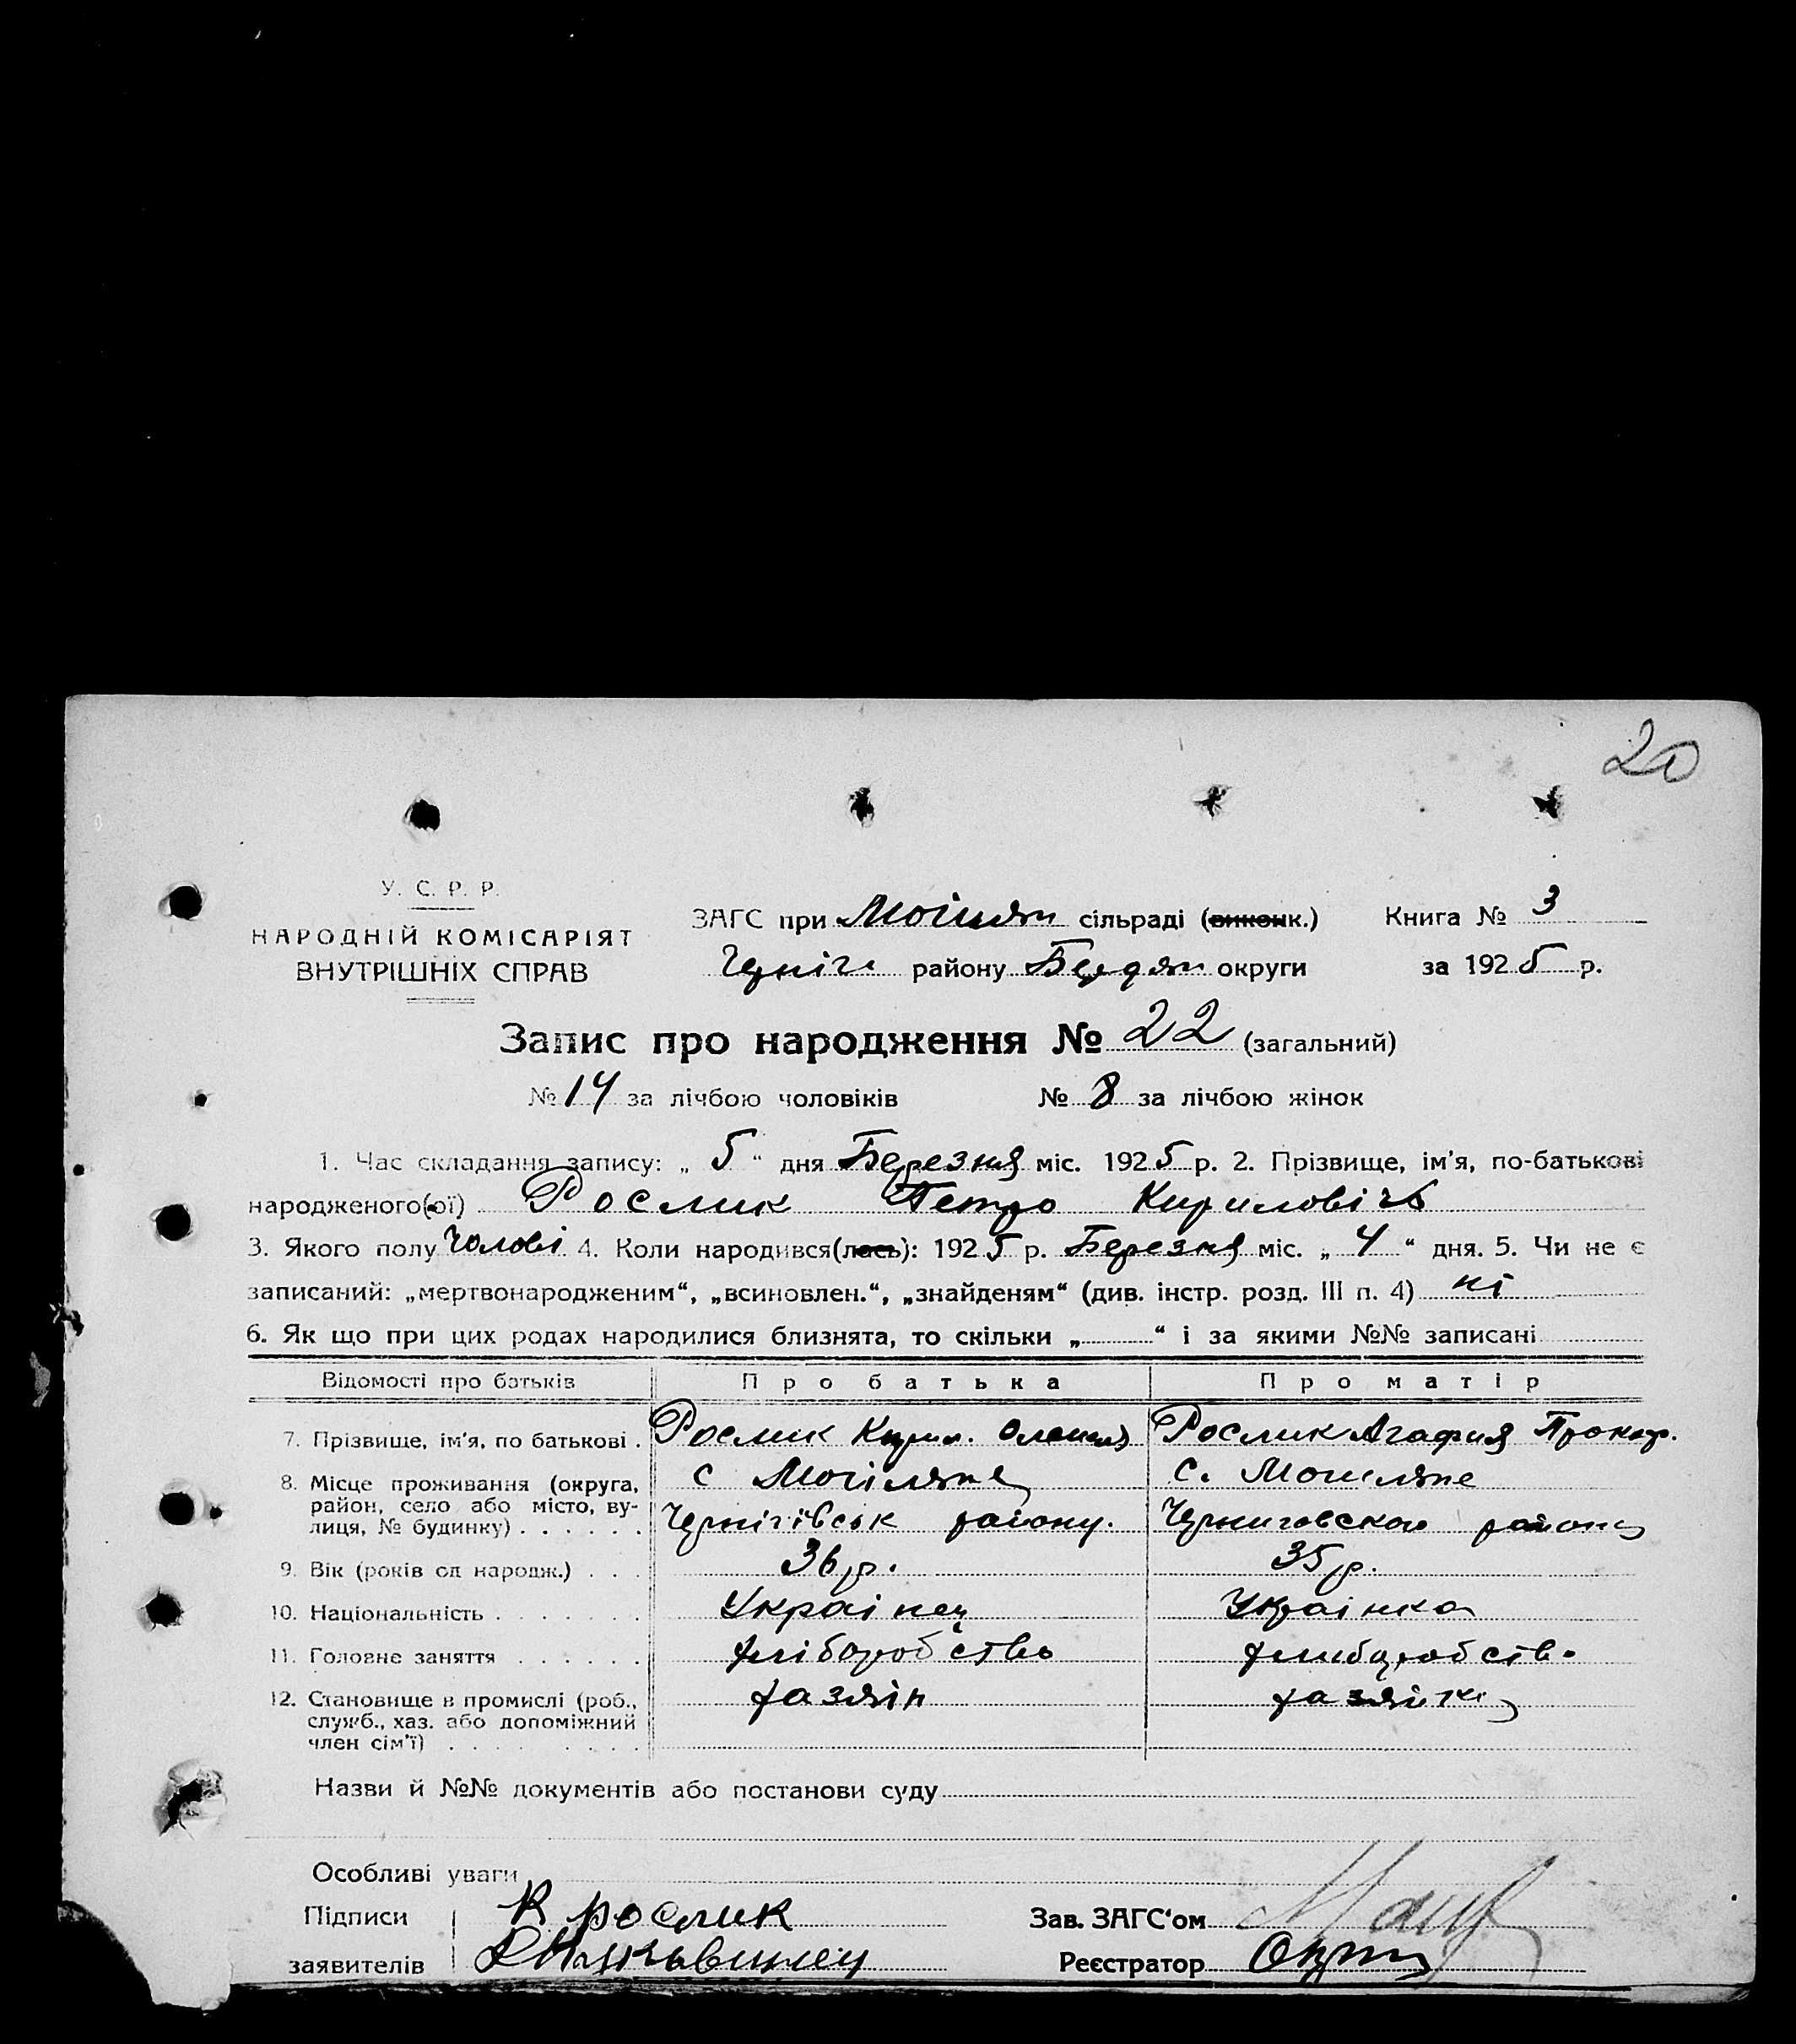 20
У. С. Р. Р.
НАРОДНІЙ КОМІСАРІЯТ
ВНУТРІШНІХ СПРАВ
ЗАГС при сільраді (виконк.) Книга № 3
Черніг району Бердян округи за 1925 р.
Запис про народження № 22 (загальний)
№ 14 за лічбою чоловіків № 8 за лічбою жінок
1. Час складання запису: „ 5 “ дня Березня міс. 1925 р. 2. Прізвище, ім'я, по-батькові
народженого(ої) Рослик Петро Кириловічь
3. Якого полу Чолові 4. Коли народився(лось): 1925 р. Березня міс. „ 4 “ дня. 5. Чи не є
записаний: „мертвонародженим“, „всиновлен.“, „знайденям“ (див. інстр. розд. III п. 4) ні
6. Як що при цих родах народилися близнята, то скільки „ “ і за якими №№ записані
Відомості про батьків Про батька Про матір
7. Прізвище, ім'я, по батькові . Рослик Кирил. Рослик Агафия Прокоф.
8. Місце проживання (округа, с Могіляне с. Могиляне
район, село або місто, ву-
лиця, № будинку) . . . . . . Чернігівськ району. Черниговского району
9. Вік (років од народж.) . . . 36 р. 35 р.
10. Національність . . . . . . . Українец Українка
11. Головне заняття . . . . . . хліборобство хлиборобство
12. Становище в промислі (роб., хазяін хазяйка
служб., хаз. або допоміжний
член сім'ї) . . . . . . . . .
Назви й №№ документів або постанови суду
Особливі уваги
Підписи К рослик Зав. ЗАГС'ом
заявителів Реєстратор